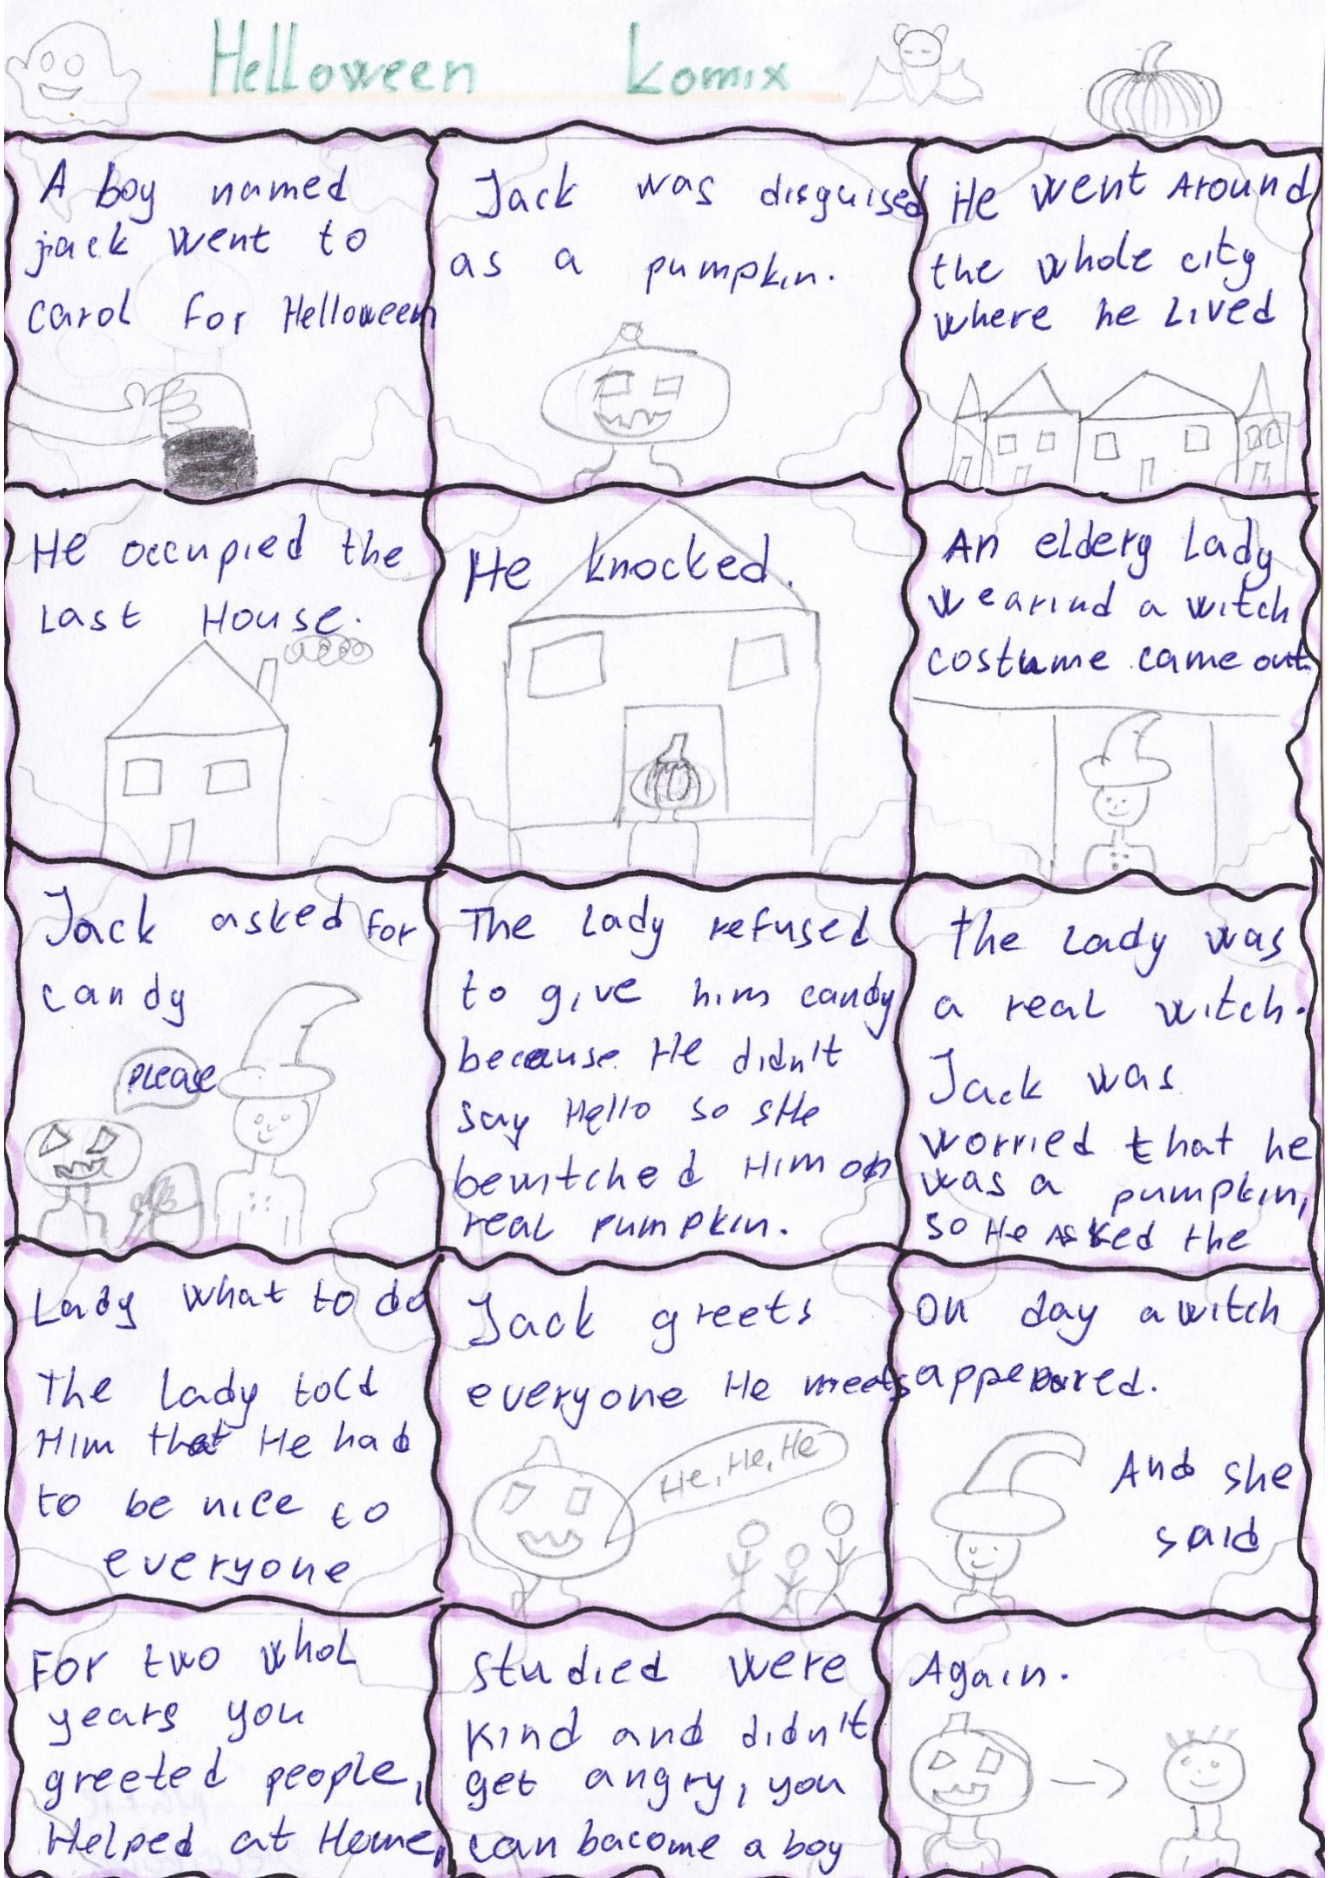 Helloween komix
A boy named
jack went to
carol for Helloween
Jack was disguised
as a pumpkin.
He went Around
the whole city
where he Lived
He occupied the
Last House.
He knocked.
An elderg Lady
wearind a witch
costume came out.
Jack asked for
candy
please
The Lady refused
to give him candy
because He didn't
say Hello so sHe
bewitched Him on
real pumpkin.
The Lady was
a real witch.
Jack was
worried that he
was a pumpkin,
so He Asked the
Lady what to do
The Lady told
Him that He had
to be nice to
everyone
Jack greets
everyone He meets
He, He, He
On day a witch
appeared.
And she
said
For two whol
years you
greeted people,
Helped at Home,
studied were
kind and didn't
get angry, you
can bacome a boy
Again.